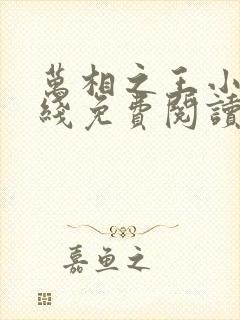 萬相之王小
綫免費閱讀
嘉魚之